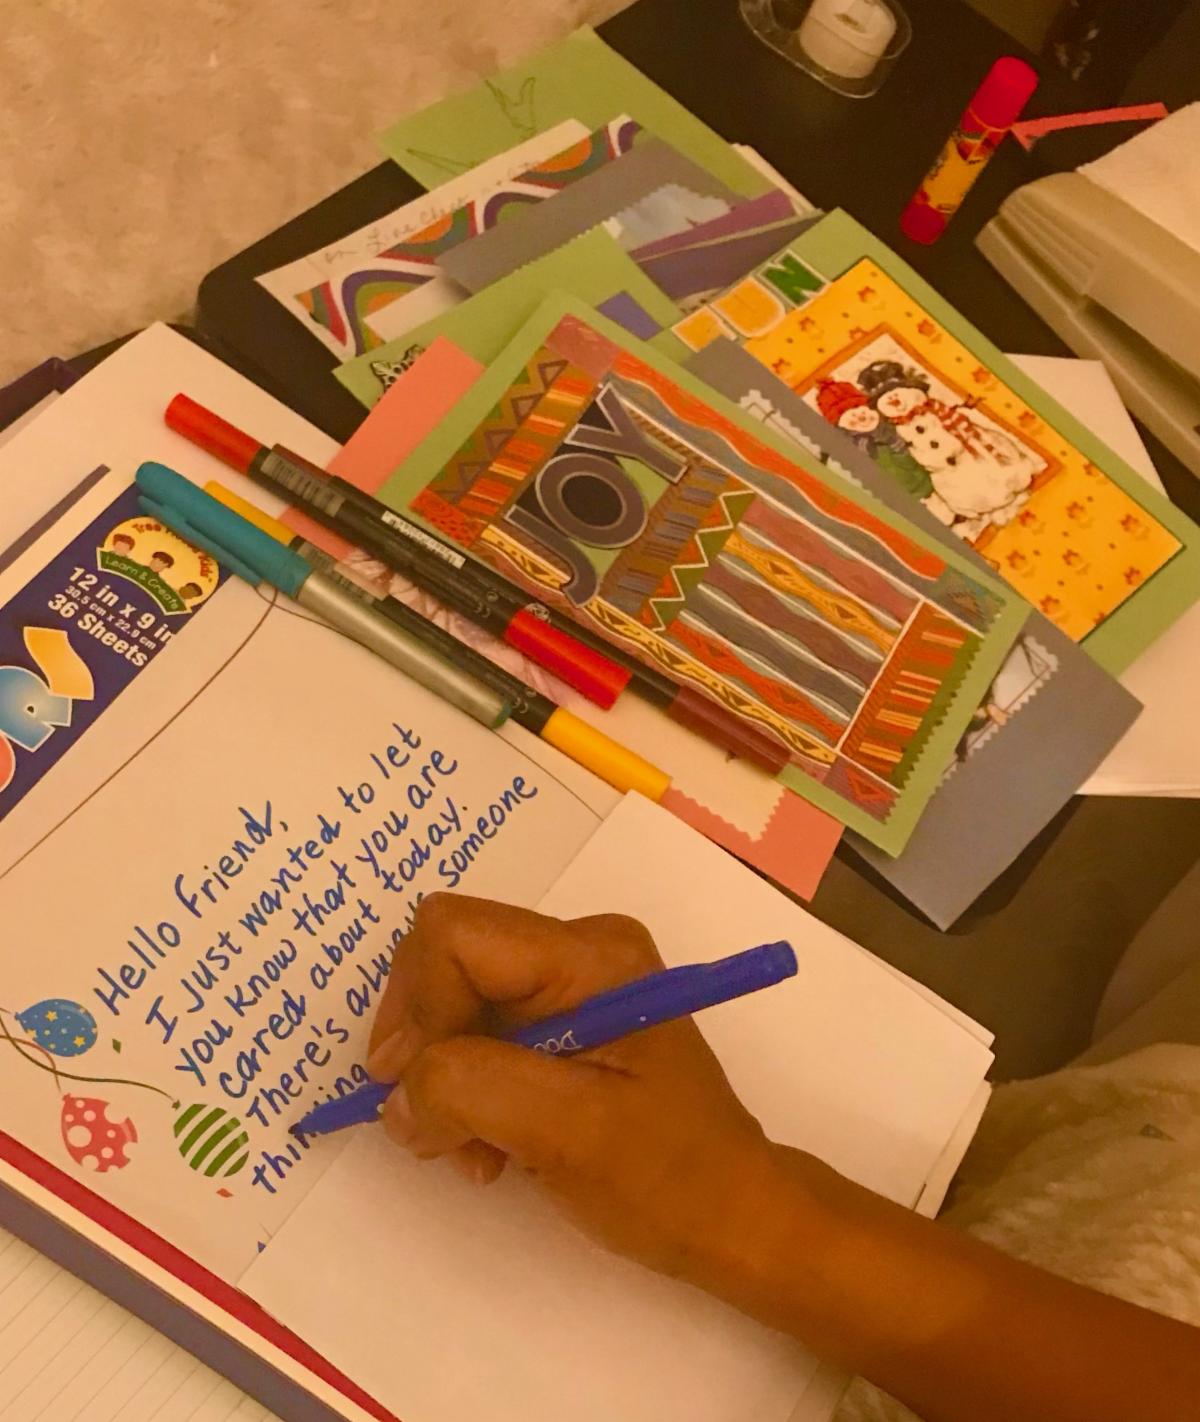 Hello Friend,
I Just wanted to let
you know that you are
cared about today.
There's always someone
thinking
JOY
FUN
Learn & Create
12 in x 9 in
30.5 cm x 22.9 cm
36 Sheets